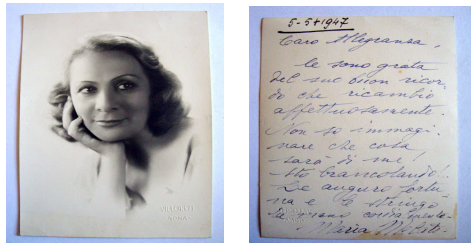 ROMA
5-5+1947
Caro Allegranza,
le sono grata
del suo buon ricor-
do che ricambio
affettuosamente.
Non so immagi-
nare che cosa
sarà di me!
Sto brancolando!
Le auguro fortu-
na e le stringo
la mano
Maria